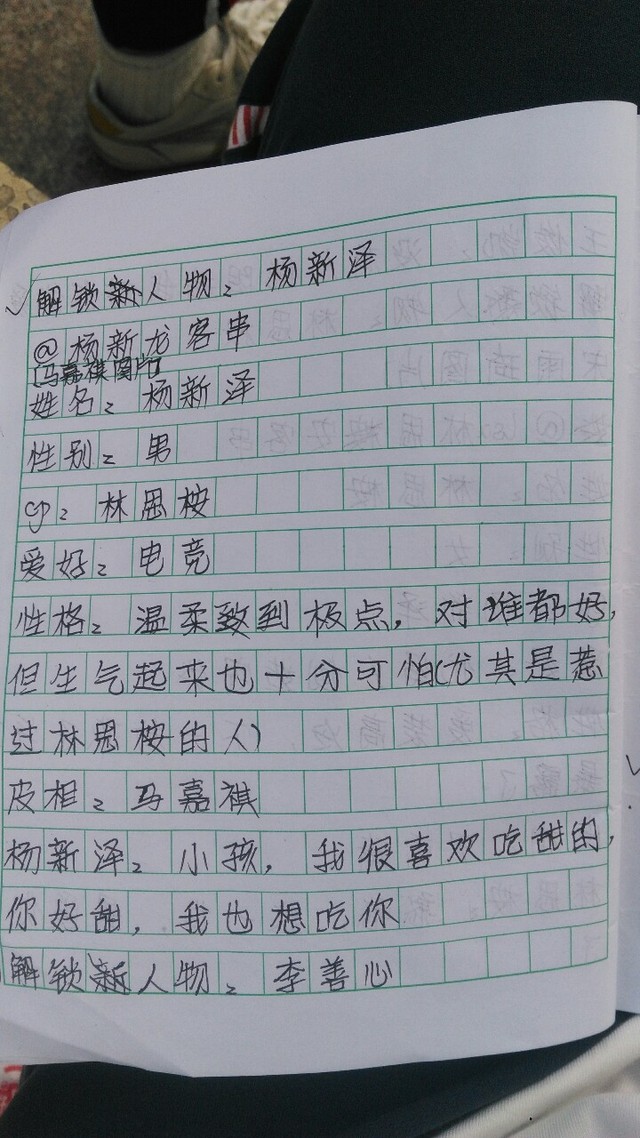 解锁新人物：杨新泽
@杨新龙客串
[马嘉祺图片]
姓名：杨新泽
性别：男
cp：林思桉
爱好：电竞
性格：温柔致到极点，对谁都好，
但生气起来也十分可怕(尤其是惹
过林思桉的人)
皮相：马嘉祺
杨新泽：小孩，我很喜欢吃甜的，
你好甜，我也想吃你
解锁新人物：李善心